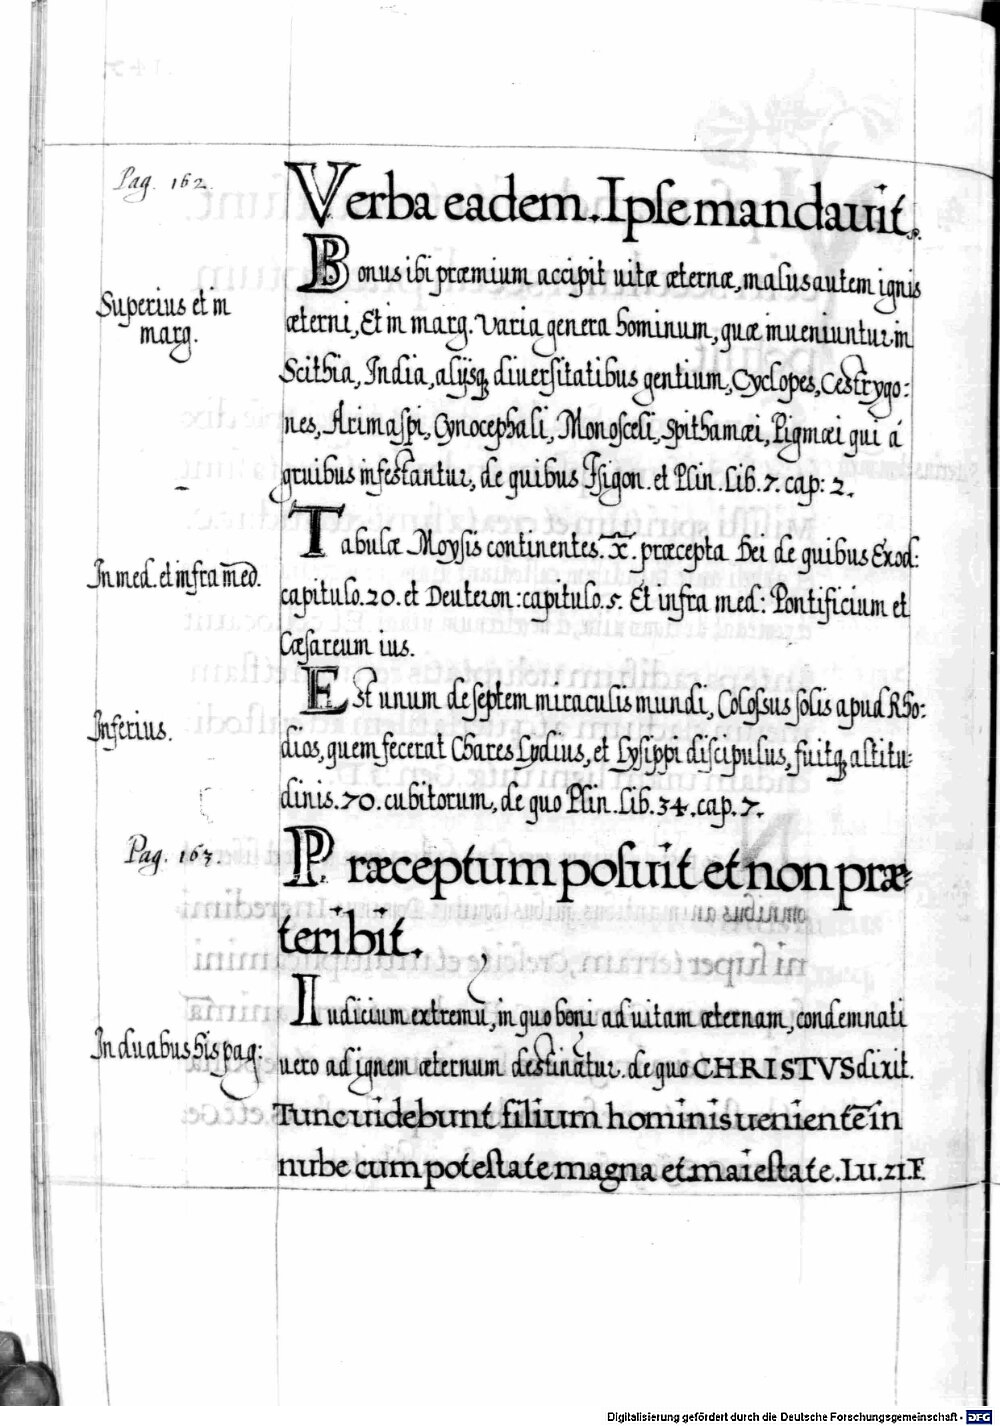 Pag. 162.
Verba eadem. Ipse mandauit.
Bonus ibi præmium accipit uitæ æternæ, malus autem ignis
Superius et in
marg.
æterni, Et in marg. Varia genera hominum, quæ inueniuntur in
Scithia, India, alijsq; diuersitatibus gentium, Cyclopes, Cestrygo:
nes, Arimaspi, Cynocephali, Monosceli, Spithamæi, Pigmæi qui á
gruibus infestantur, de quibus Isigon. et Plin. Lib. 7. cap: 2.
In med. et infra med.
Tabulæ Moysis continentes .X̅. præcepta Dei de quibus Exod:
capitulo. 20. et Deuteron: capitulo. 5. Et infra med: Pontificium et
Cæsareum ius.
Inferius.
Est unum de septem miraculis mundi, Colossus solis apud Rho:
dios, quem fecerat Chares Lydius, et Lysippi discipulus, fuitq; altitu:
dinis. 70. cubitorum, de quo Plin. Lib. 34. cap. 7.
Pag. 163.
Præceptum posuit et non præ:
teribit.
In duabus his pag:
Iudicium extremū, in quo boni ad uitam æternam, condemnati
uero ad ignem æternum destinātur. de quo CHRISTVS dixit.
Tunc uidebunt filium hominis uenientē in
nube cum potestate magna et maiestate. Lu. 21. F
Digitalisierung gefördert durch die Deutsche Forschungsgemeinschaft - DFG